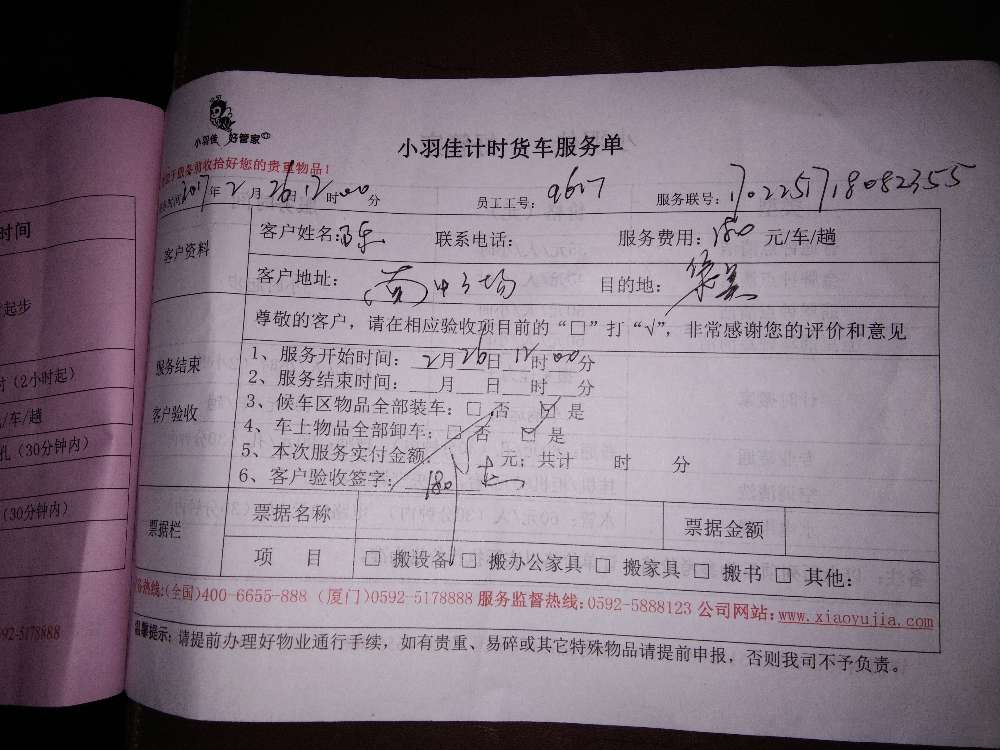 小羽佳 好管家
小羽佳计时货车服务单
收拾好您的贵重物品!
2017年2月26日12时00分 员工工号: 9617 服务联号: 1702251718082355
客户资料
客户姓名: 联系电话: 服务费用: 180 元/车/趟
客户地址: 目的地: 华美
尊敬的客户,请在相应验收项目前的“□”打“√”,非常感谢您的评价和意见
服务结束
客户验收
1、服务开始时间: 2月26日12时00分
2、服务结束时间: 月 日 时 分
3、候车区物品全部装车: □ 否 □ 是
4、车上物品全部卸车: □ 否 □ 是
5、本次服务实付金额: 元; 共计 时 分
6、客户验收签字: 180
票据栏
票据名称 票据金额
项 目 □ 搬设备 □ 搬办公家具 □ 搬家具 □ 搬书 □ 其他:
热线:(全国)400-6655-888 (厦门)0592-5178888 服务监督热线:0592-5888123 公司网站:www.xiaoyujia.com
温馨提示: 请提前办理好物业通行手续, 如有贵重、易碎或其它特殊物品请提前申报, 否则我司不予负责。
时间
起步
(2小时起)
/车/趟
孔 (30分钟内)
(30分钟内)
592-5178888